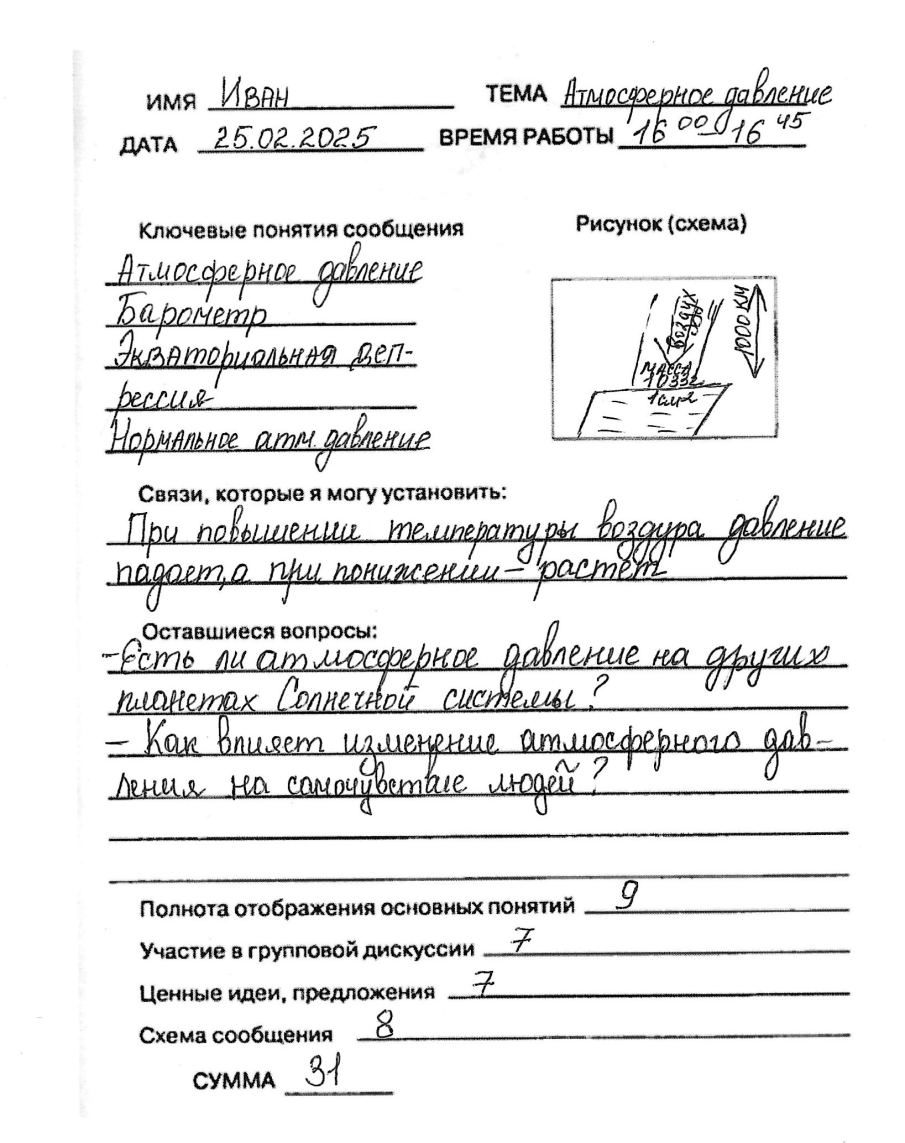 ИМЯ Иван ТЕМА Атмосферное давление
ДАТА 25.02.2025 ВРЕМЯ РАБОТЫ 16 00 – 16 45
Ключевые понятия сообщения
Атмосферное давление
Барометр
Экваториальная деп-
рессия
Нормальное атм. давление
Рисунок (схема)
ВОЗДУХ
1000 КМ
МАССА
1033г
Связи, которые я могу установить:
При повышении температуры воздура давление
падает, а при понижении – растёт
Оставшиеся вопросы:
- Есть ли атмосферное давление на других
планетах Солнечной системы?
- Как влияет изменение атмосферного дав-
ления на самочувствие людей?
Полнота отображения основных понятий 9
Участие в групповой дискуссии 7
Ценные идеи, предложения 7
Схема сообщения 8
СУММА 31